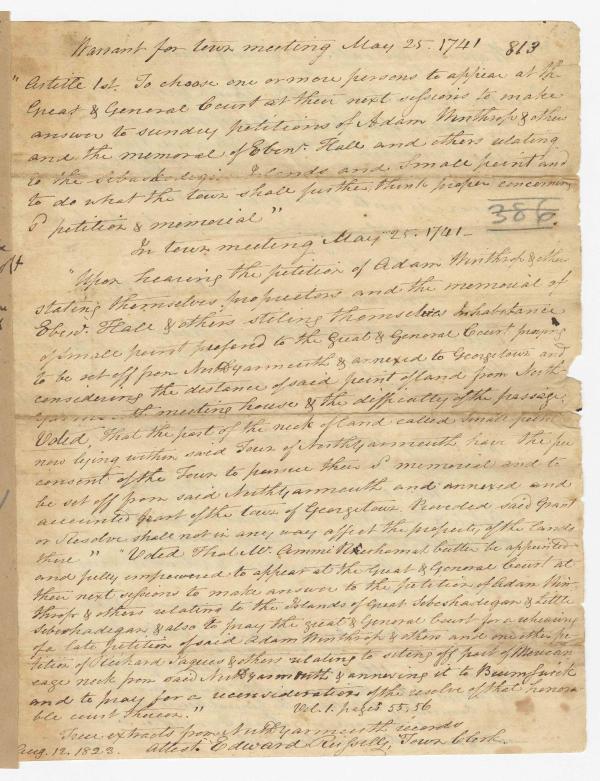 Warrant for town meeting May 25. 1741 813
"Article 1st. To choose one or more persons to appear at the
Great & General Court at their next sessions to make
answer to sundry petitions of Adam Winthrop & others
and the memorial of Ebenr. Hall and others relating
to the Islands and Small point and
to do what the town shall further think proper concerning
sd petition & memorial"
386
In town meeting May 25. 1741-
"Upon hearing the petition of Adam Winthrop & others
stating themselves proprietors and the memorial of
Ebenr. Hall & others stiling themselves Inhabitance
of Small point prefered to the Great & General Court praying
to be set off from Northyarmouth & annexed to Georgetown and
considering the distance of said point of land from North-
yarmouth meeting house & the difficulty of the passage,
Voted, That the part of the neck of land called Small point
now lying within said Town of Northyarmouth have the
consent of the Town to persue their sd memorial and to
be set off from said Northyarmouth and annexed and
accounted part of the town of Georgetown. Provided said Grant
or Resolve shall not in any way affect the property of the lands
there" "Voted That Mr. Ammi Ruhamah Cutter be appointed
and fully empowered to appear at the Great & General Court at
their next sessions to make answer to the petition of Adam Win-
throp & others relating to the Islands of Great Sebeshadegan & Little
Sebeshadegan, & also to pray the great & General Court for a rehearing
of a late petition of said Adam Winthrop & others and one other pe-
tition of Richard Jaques & others relating to siting off part of Merican
eage neck from said Northyarmouth & annexing it to Brunswick
and to pray for a reconsideration of the resolve of that honora
ble court thereon." Vol. 1. pages 55, 56
True extracts from Northyarmouth records
Aug. 12. 1823. Attest. Edward Russell, Town Clerk